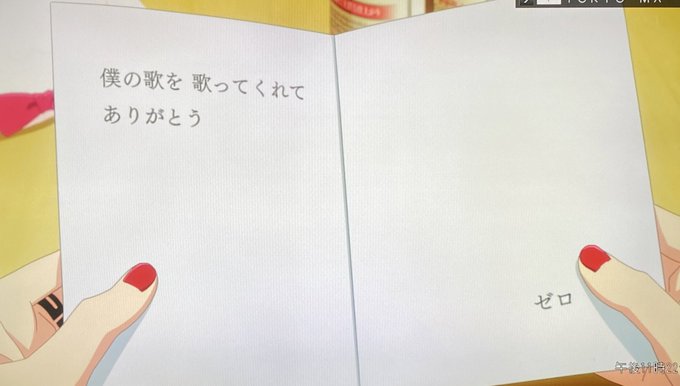 TOKYO MX
僕の歌を 歌ってくれて
ありがとう
ゼロ
午後11時22